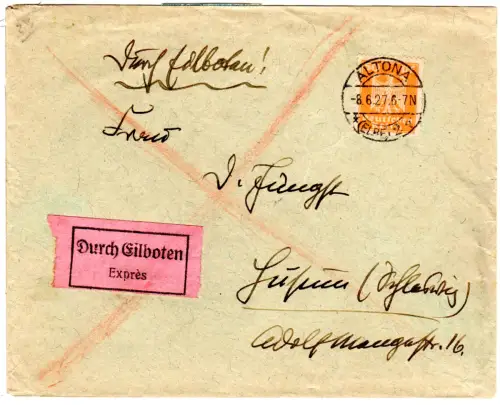 Durch Eilboten!
ALTONA
-8.6.27.6-7N
(ELBE) 2
Frau
D. Jungst
Durch Eilboten
Exprès
Husum (Schleswig)
Adolf
str. 16.